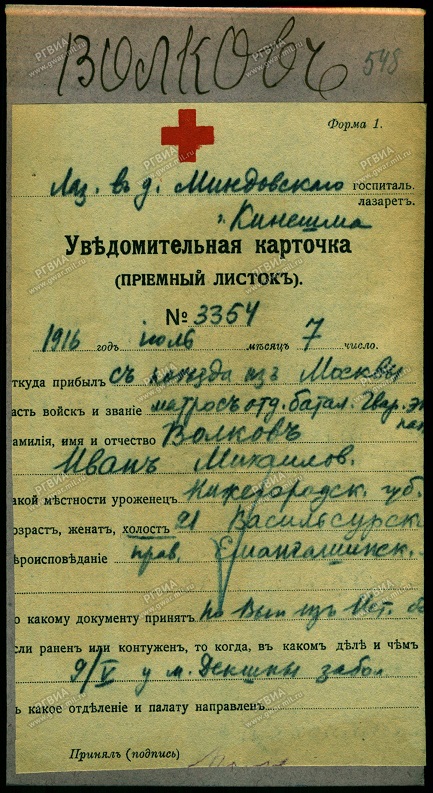 ВОЛКОВЪ 548
Форма 1.
Лаз. въ д. Миндовскаго госпиталь.
лазаретъ.
г. Кинешма
Увѣдомительная карточка
(ПРІЕМНЫЙ ЛИСТОКЪ).
№ 3354
1916 годъ іюль мѣсяцъ 7 число.
ткуда прибылъ съ поѣзда изъ Москвы
асть войскъ и званіе матросъ отд. батал. Гвар. Эк
амилія, имя и отчество Волковъ
Иванъ Михайлов.
акой мѣстности уроженецъ Нижегородск. губ.
озрастъ, женатъ, холостъ 21 Васильсурск
ѣроисповѣданіе прав.
о какому документу принятъ по Вып изъ Ист. б
сли раненъ или контуженъ, то когда, въ какомъ дѣлѣ и чѣмъ
9/V у м. забол
ъ какое отдѣленіе и палату направленъ
Принялъ (подпись)
РГВИА
www.gwarmil.ru